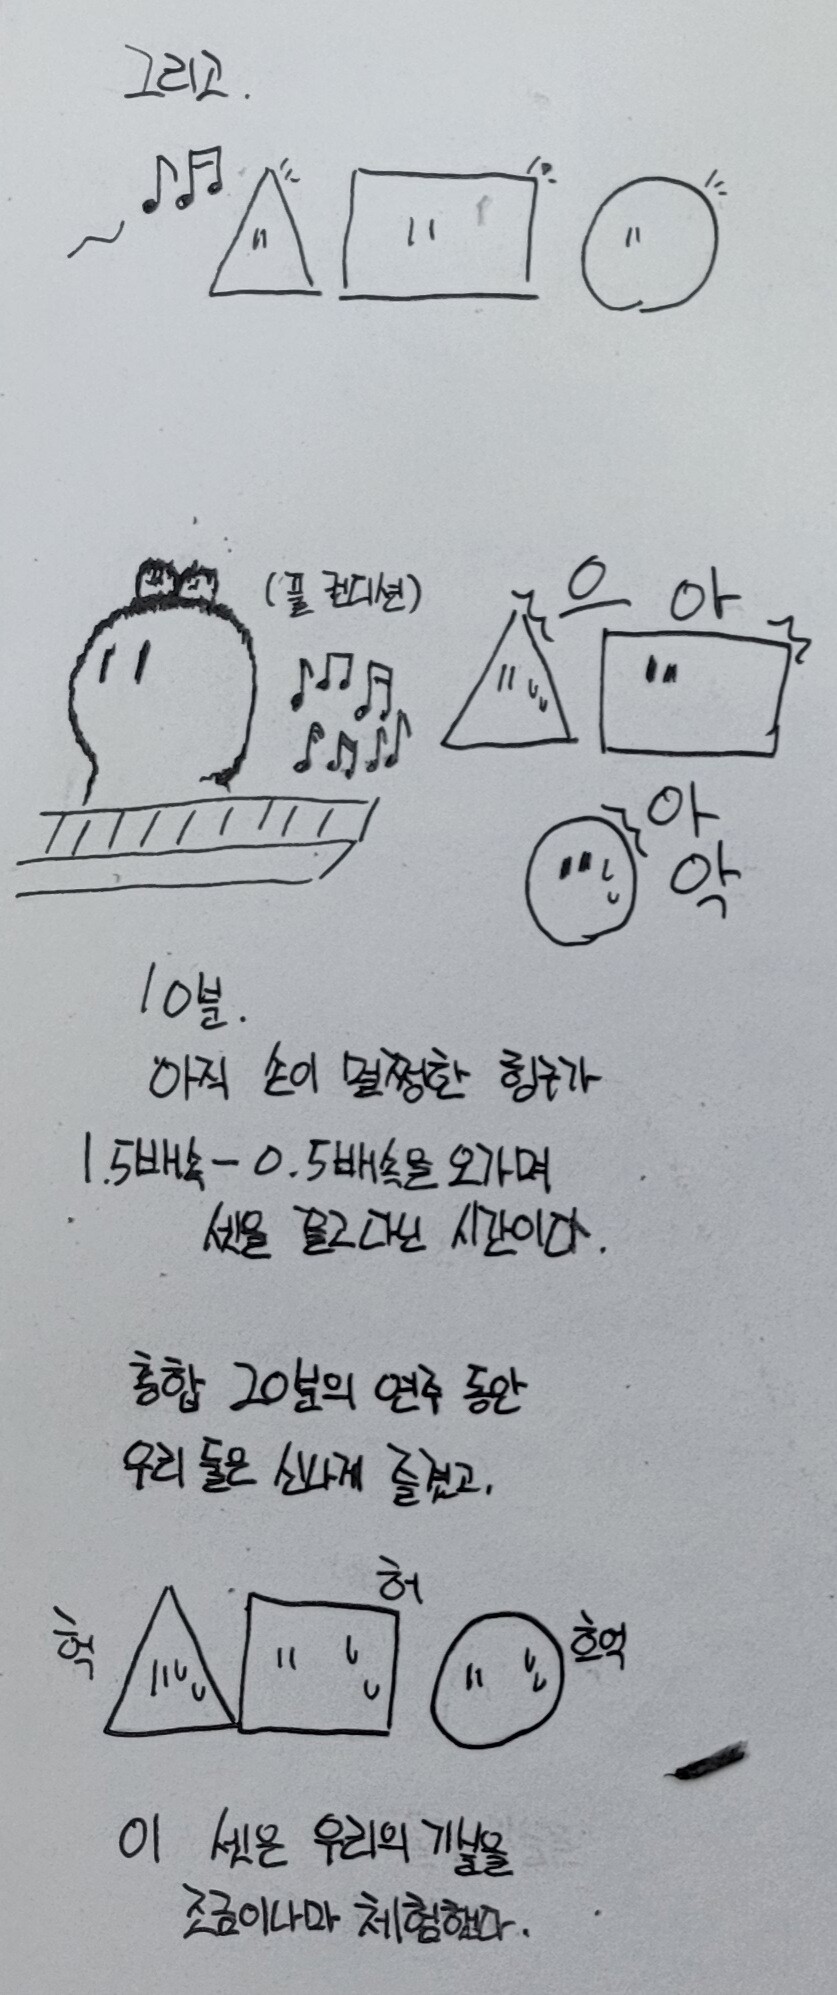 그리고.
(풀 컨디션)
으 아
아
악
10분.
아직 손이 멀쩡한 힝구가
1.5배속-0.5배속을 오가며
셋을 끌고다닌 시간이다.
총합 20분의 연주 동안
우리 둘은 신나게 즐겼고,
헉
허
흐억
이 셋은 우리의 기실을
조금이나마 체험했다.